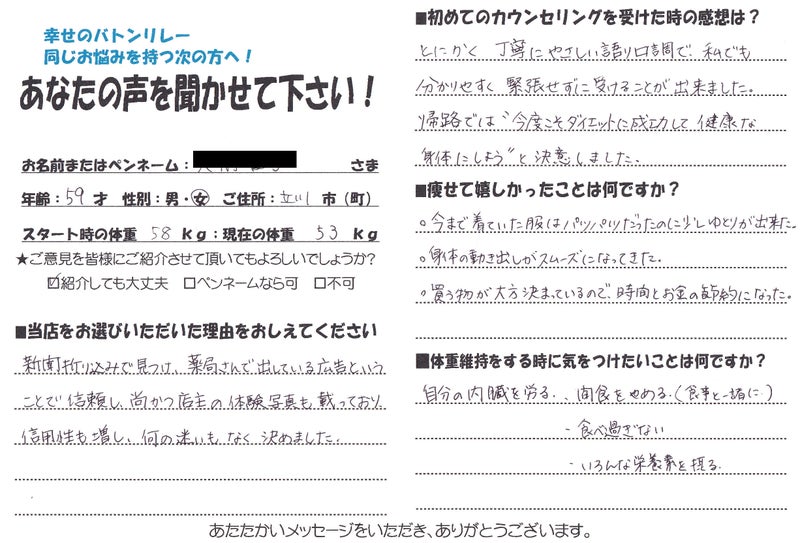 幸せのバトンリレー
同じお悩みを持つ次の方へ！
あなたの声を聞かせて下さい！
お名前またはペンネーム： さま
年齢：59 才 性別：男・女 ご住所：立川 市（町）
スタート時の体重 58 kg：現在の体重 53 kg
★ご意見を皆様にご紹介させて頂いてもよろしいでしょうか？
☑紹介しても大丈夫 □ペンネームなら可 □不可
■当店をお選びいただいた理由をおしえてください
新聞折り込みで見つけ、薬局さんで出している広告という
ことで信頼し、尚かつ店主の体験写真も載っており
信用性も増し、何の迷いもなく決めました。
■初めてのカウンセリングを受けた時の感想は？
とにかく丁寧にやさしい語り口調で、私でも
分かりやすく緊張せずに受けることが出来ました。
帰路では"今度こそダイエットに成功して健康な
身体にしよう"と決意しました。
■痩せて嬉しかったことは何ですか？
。今まで着ていた服はパッパツだったのに少しゆとりが出来た。
。身体の動き出しがスムーズになってきた。
。買う物が大方決まっているので、時間とお金の節約になった。
■体重維持をする時に気をつけたいことは何ですか？
自分の内臓を労る、、間食をやめる。（食事と一緒に）
・食べ過ぎない
・いろんな栄養素を摂る
あたたかいメッセージをいただき、ありがとうございます。